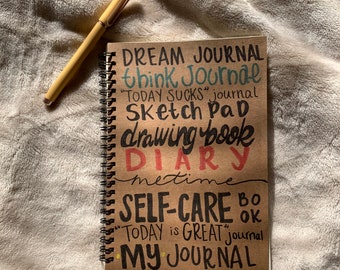 DREAM JOURNAL
think Journal
"TODAY SUCKS" journal
SKetch PaD
drawing book
DIARY
metime
SELF-CARE BOOK
"TODAY is GREAT" journal
MY JOURNAL